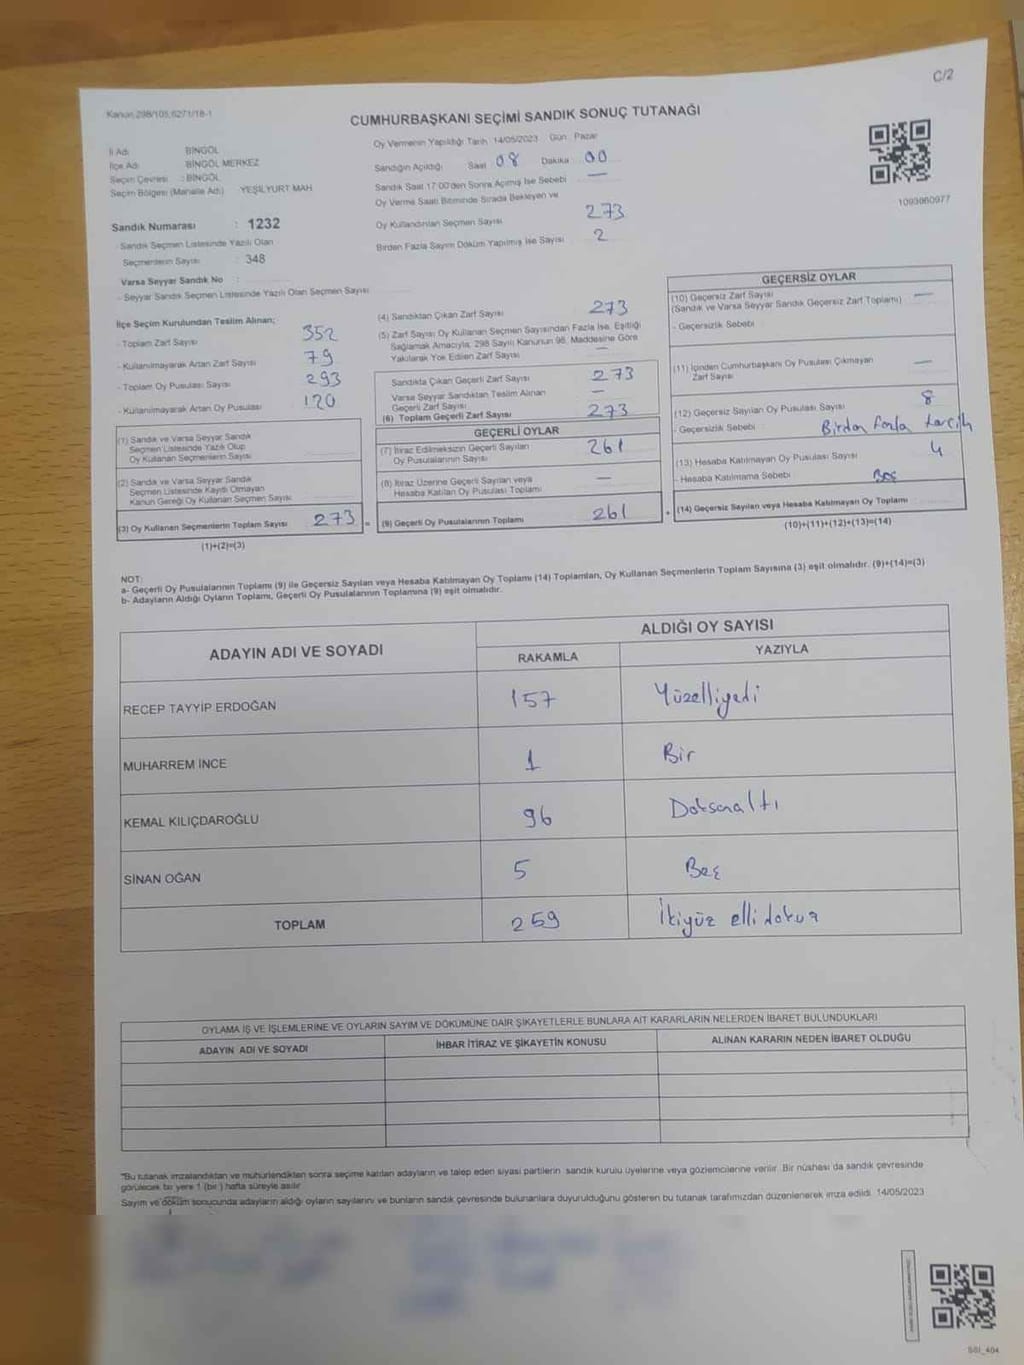 C/2
Kanun 298/105;6271/18-1
CUMHURBAŞKANI SEÇİMİ SANDIK SONUÇ TUTANAĞI
İl Adı : BİNGÖL
İlçe Adı : BİNGÖL MERKEZ
Seçim Çevresi : BİNGÖL
Seçim Bölgesi (Mahalle Adı) YEŞİLYURT MAH
Sandık Numarası : 1232
- Sandık Seçmen Listesinde Yazılı Olan
Seçmenlerin Sayısı : 348
Varsa Seyyar Sandık No :
- Seyyar Sandık Seçmen Listesinde Yazılı Olan Seçmen Sayısı
Oy Vermenin Yapıldığı Tarih 14/05/2023 Gün : Pazar
Sandığın Açıldığı Saat 08 Dakika 00
Sandık Saat 17:00'den Sonra Açımış İse Sebebi —
Oy Verme Saati Bitiminde Sırada Bekleyen ve
Oy Kullandırılan Seçmen Sayısı 273
Birden Fazla Sayım Döküm Yapılmış İse Sayısı 2
1093660977
İlçe Seçim Kurulundan Teslim Alınan;
- Toplam Zarf Sayısı 352
- Kullanılmayarak Artan Zarf Sayısı 79
- Toplam Oy Pusulası Sayısı 293
- Kullanılmayarak Artan Oy Pusulası 120
(1) Sandık ve Varsa Seyyar Sandık
Seçmen Listesinde Yazılı Olup
Oy Kullanan Seçmenlerin Sayısı
(2) Sandık ve Varsa Seyyar Sandık
Seçmen Listesinde Kayıtlı Olmayan
Kanun Gereği Oy Kullanan Seçmen Sayısı
(3) Oy Kullanan Seçmenlerin Toplam Sayısı 273 =
(1)+(2)=(3)
(4) Sandıktan Çıkan Zarf Sayısı 273
(5) Zarf Sayısı Oy Kullanan Seçmen Sayısından Fazla İse, Eşitliği
Sağlamak Amacıyla; 298 Sayılı Kanunun 98. Maddesine Göre
Yakılarak Yok Edilen Zarf Sayısı —
Sandıkta Çıkan Geçerli Zarf Sayısı 273
Varsa Seyyar Sandıktan Teslim Alınan
Geçerli Zarf Sayısı —
(6) Toplam Geçerli Zarf Sayısı 273
GEÇERLİ OYLAR
(7) İtiraz Edilmeksizin Geçerli Sayılan
Oy Pusulalarının Sayısı 261
(8) İtiraz Üzerine Geçerli Sayılan veya
Hesaba Katılan Oy Pusulası Toplamı —
(9) Geçerli Oy Pusulalarının Toplamı 261 +
GEÇERSİZ OYLAR
(10) Geçersiz Zarf Sayısı —
(Sandık ve Varsa Seyyar Sandık Geçersiz Zarf Toplamı)
- Geçersizlik Sebebi
(11) İçinden Cumhurbaşkanı Oy Pusulası Çıkmayan —
Zarf Sayısı
(12) Geçersiz Sayılan Oy Pusulası Sayısı 8
- Geçersizlik Sebebi Birden fazla tercih
(13) Hesaba Katılmayan Oy Pusulası Sayısı 4
- Hesaba Katılmama Sebebi Boş
(14) Geçersiz Sayılan veya Hesaba Katılmayan Oy Toplamı
(10)+(11)+(12)+(13)=(14)
NOT:
a- Geçerli Oy Pusulalarının Toplamı (9) ile Geçersiz Sayılan veya Hesaba Katılmayan Oy Toplamı (14) Toplamları, Oy Kullanan Seçmenlerin Toplam Sayısına (3) eşit olmalıdır. (9)+(14)=(3)
b- Adayların Aldığı Oyların Toplamı, Geçerli Oy Pusulalarının Toplamına (9) eşit olmalıdır.
ADAYIN ADI VE SOYADI
ALDIĞI OY SAYISI
RAKAMLA YAZIYLA
RECEP TAYYİP ERDOĞAN 157 Yüzelliyedi
MUHARREM İNCE 1 Bir
KEMAL KILIÇDAROĞLU 96 Doksanaltı
SİNAN OĞAN 5 Beş
TOPLAM 259 İkiyüz ellidokuz
OYLAMA İŞ VE İŞLEMLERİNE VE OYLARIN SAYIM VE DÖKÜMÜNE DAİR ŞİKAYETLERLE BUNLARA AİT KARARLARIN NELERDEN İBARET BULUNDUKLARI
ADAYIN ADI VE SOYADI İHBAR İTİRAZ VE ŞİKAYETİN KONUSU ALINAN KARARIN NEDEN İBARET OLDUĞU
"Bu tutanak imzalandıktan ve mühürlendikten sonra seçime katılan adayların ve talep eden siyasi partilerin sandık kurulu üyelerine veya gözlemcilerine verilir. Bir nüshası da sandık çevresinde
görülecek bir yere 1 (bir ) hafta süreyle asılır.
Sayım ve döküm sonucunda adayların aldığı oyların sayılarını ve bunların sandık çevresinde bulunanlara duyurulduğunu gösteren bu tutanak tarafımızdan düzenlenerek imza edildi. 14/05/2023
SSI_404